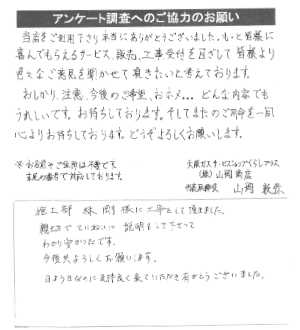 アンケート調査へのご協力のお願い
当店をご利用下さり本当にありがとうございました。もっと皆様に
喜んでもらえるサービス、販売、工事受付を目ざして皆様より
色々なご意見を聞かせて頂きたいと考えております。
おしかり、注意、今後のご希望、おホメ… どんな内容でも
うれしいです。お待ちしております。そしてまたのご用命を一同
心よりお待ちしております。どうぞよろしくお願いします。
※お名前やご住所は不要です
大阪ガスサービスショップくらしプラス
(株)山岡商店
山岡
施工部 林 剛 様に工事をして頂きました。
親切でていねいに説明をして下さって
わかり安かったです。
今後共よろしくお願いします。
日よう日なのに気持良く来ていただきありがとうございました。